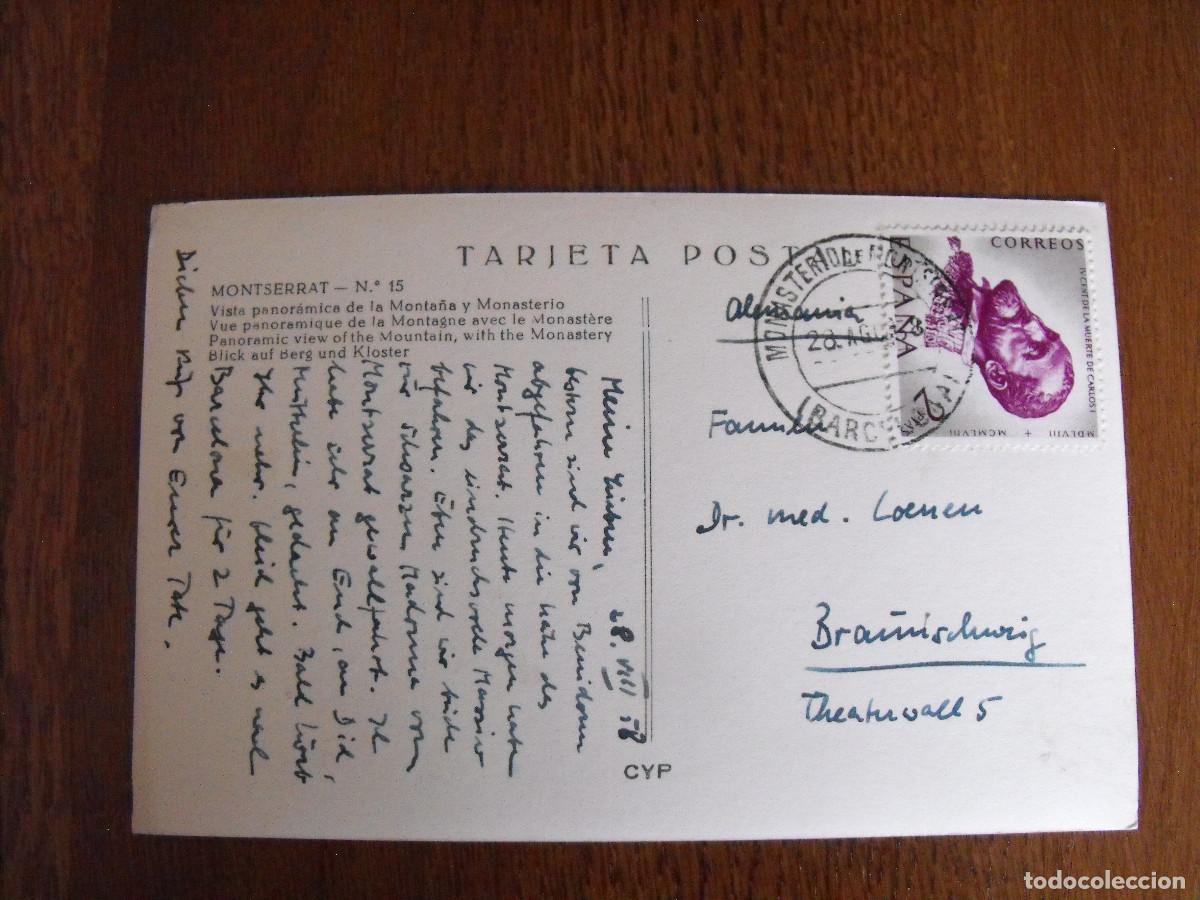 TARJETA POSTAL
MONTSERRAT — N.° 15
Vista panorámica de la Montaña y Monasterio
Vue panoramique de la Montagne avec le Monastère
Panoramic view of the Mountain, with the Monastery
Blick auf Berg und Kloster
28. VIII 58
Meine Lieben,
gestern sind wir von Benidorm
abgefahren in die Nähe des
Montserrat. Heute morgen hatte
wir das eindrucksvolle Massiv
befahren. Eben sind wir beide
zur schwarzen Madonna vom
Montserrat gewallfahrt. Ich
habe ihr an Euch, an Dich,
Mütterlein, gedacht. Bald hört
Ihr mehr. Gleich geht es nach
Barcelona für 2 Tage.
Dicken Kuß von Eurer
CYP
Alemania
Familie
Dr. med. Loenen
Braunschweig
Theaterwall 5
CORREOS
ESPAÑA
IV CENT. DE LA MUERTE DE CARLOS I
MDLVIII + MCMLVIII
2 PTAS
MONASTERIO DE MONTSERRAT
28. AGO. 58
(BARCELONA)
todocoleccion